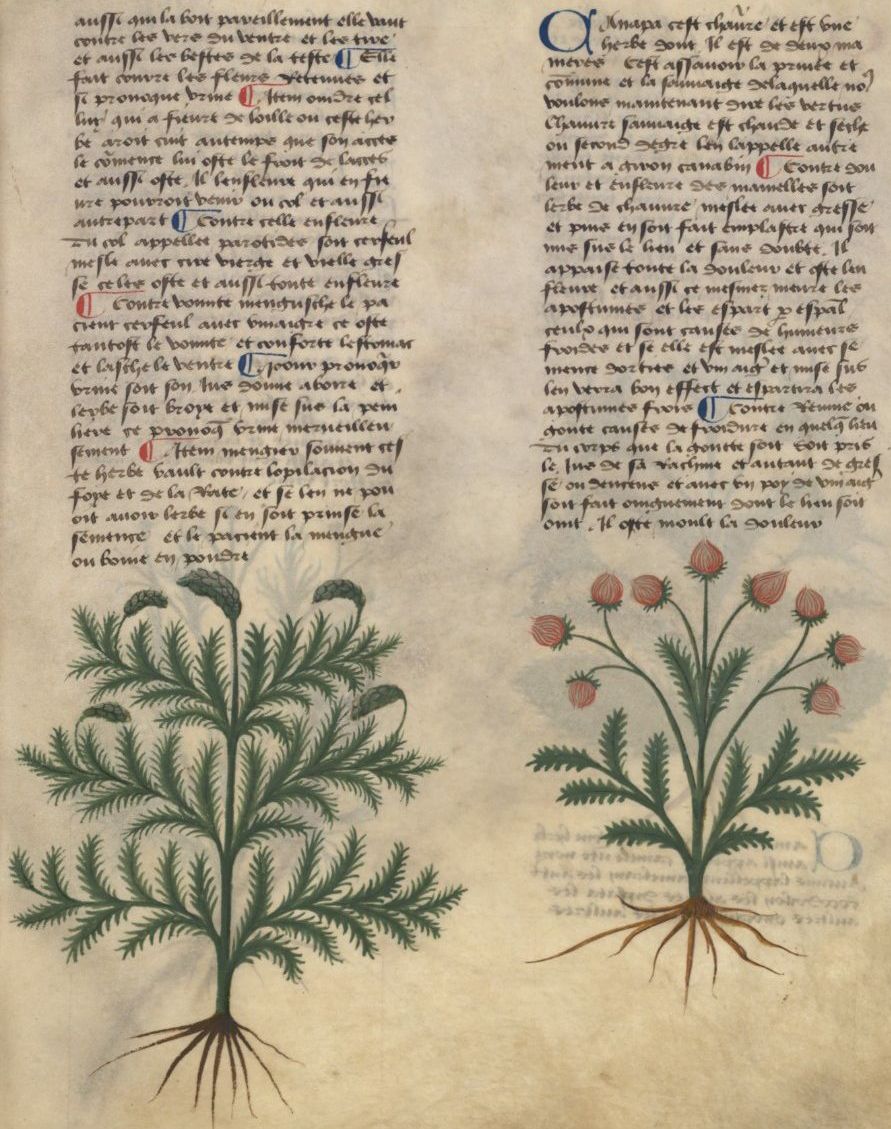 aussi qui la boit pareillement elle vault
contre les vers du ventre et les tire
et aussi les bestes de la teste ¶ Elle
fait courre les fleurs Retenues et
si prouoque vrine ¶ Item oindre cel
luy qui a fieure de loille ou ceste her
be aroit cuit autemps que son acces
le cōmence lui oste le froit de lacces
et aussi oste. Il lenfleure qui en fie
ure pourroit venir ou col et aussi
autrepart ¶ Contre celle enfleure
du col appellee parotides soit cerfeul
mesle auec cire vierge et vielle gres
se celes oste et aussi toute enfleure
¶ Contre vomite mengusche le pa
cient cerfeul auec vinaigre ce oste
tantost le vomite et conforte lestomac
et lasche le ventre ¶ pour prouoq̄r
vrine soit son Jus donne aboire et
lerbe soit broye et mise sus la penn
liere ce prouoq̄ vrine merueilleu
sement ¶ Item mengier souuent ces
te herbe vault contre lopilacion du
foye et de la Rate, et se len ne pou
oit auoir lerbe si en soit prinse la
semence et le pacient la mengue
ou boiue en pouldre
Canapa cest chāure et est vne
herbe dont Il est de deux ma
nieres Cest assauoir la priuee et
cōmune et la sauuaige delaquelle no9
voulons maintenant dire les vertus
Chanure sauuaige est chaude et seche
ou second degre len lappelle autre
ment a giron canabin ¶ Contre dou
leur et enfleure des mamelles soit
lerbe de chanure meslee auec gresse
et puis en soit fait emplastre qui soit
mis sus le lieu et sans doubte. Il
appaise toute la douleur et oste len
fleure et aussi ce mesmez meure les
apostumes et les espart p espāl
ceulx qui sont causes de humeurs
froides et se elle est meslee auec se
mence dorties et vin aigr̄ et mise sus
len verra bon effect et espartira les
apostumes frois ¶ Contre Reume ou
goute causes de froidure en quelq̄ lieu
du corps que la goutte soit Soit pris
le Jus de sa Rachine et autant de gres
se ou dencens et auec vn poy de vin aigr̄
soit fait oinguement dont le lieu soit
oint. Il oste moult la douleur